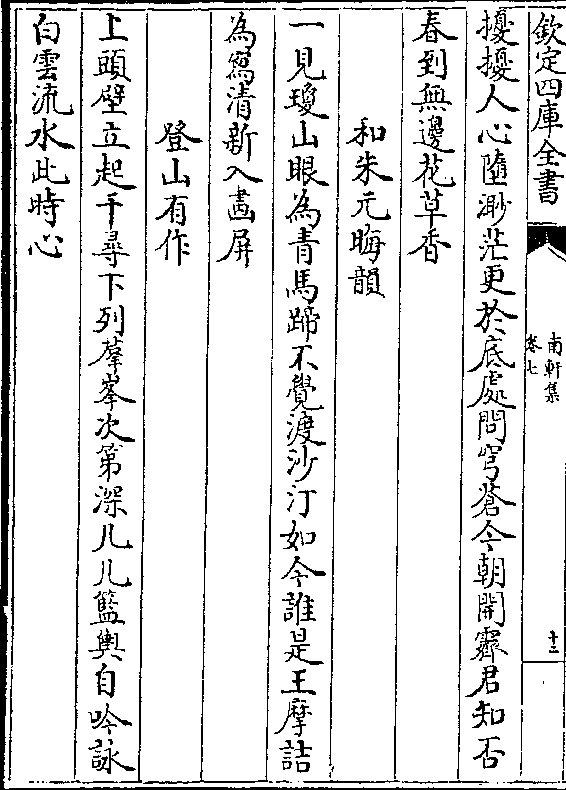 欽定四庫全書
南軒集
卷七
十三
擾擾人心墮渺茫更於底處問穹蒼今朝開霽君知否
春到無邊花草香
和朱元晦韻
一見瓊山眼為青馬蹄不覺渡沙汀如今誰是王摩詰
為寫清新入畵屏
登山有作
上頭壁立起千尋下列羣峯次第深兀兀籃輿自吟詠
白雲流水此時心